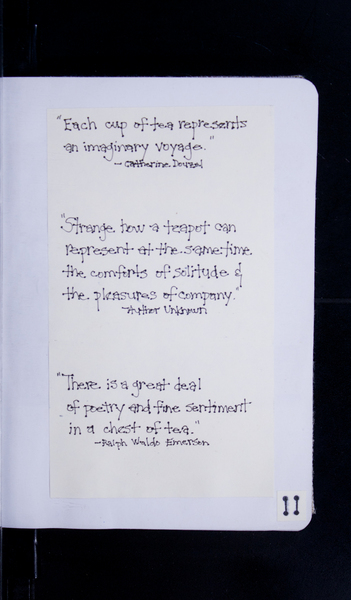 "Each cup of tea represents
an imaginary voyage."
- Catherine Douzel
"Strange how a teapot can
represent at the same time
the comforts of solitude &
the pleasures of company."
- Author Unknown
"There is a great deal
of poetry and fine sentiment
in a chest of tea."
- Ralph Waldo Emerson
11